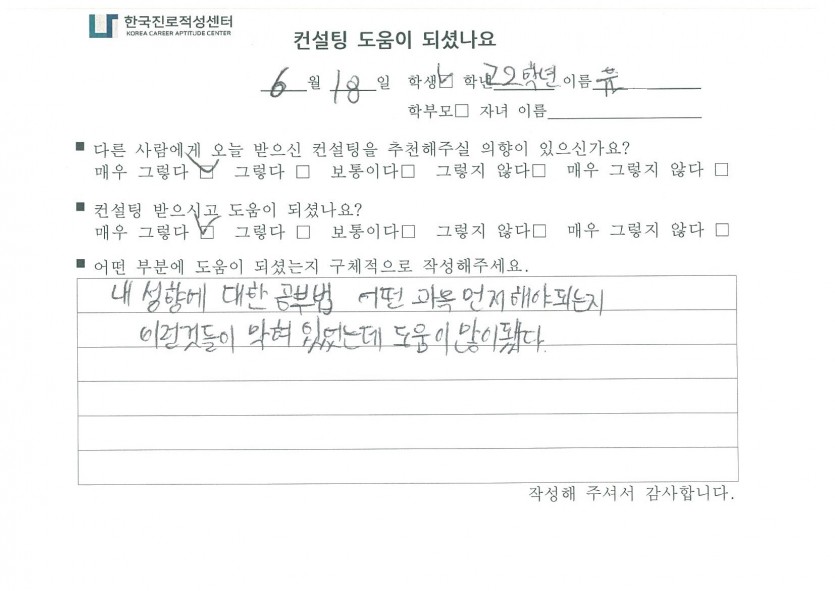 한국진로적성센터
KOREA CAREER APTITUDE CENTER
컨설팅 도움이 되셨나요
6 월 18 일 학생☑ 학년 고2학년 이름 윤
학부모□ 자녀 이름
■ 다른 사람에게 오늘 받으신 컨설팅을 추천해주실 의향이 있으신가요?
매우 그렇다 ☑ 그렇다 □ 보통이다□ 그렇지 않다□ 매우 그렇지 않다 □
■ 컨설팅 받으시고 도움이 되셨나요?
매우 그렇다 ☑ 그렇다 □ 보통이다□ 그렇지 않다□ 매우 그렇지 않다 □
■ 어떤 부분에 도움이 되셨는지 구체적으로 작성해주세요.
내 성향에 대한 공부법 어떤 과목 먼저해야되는지
이런것들이 막혀 있었는데 도움이 많이됐다.
작성해 주셔서 감사합니다.